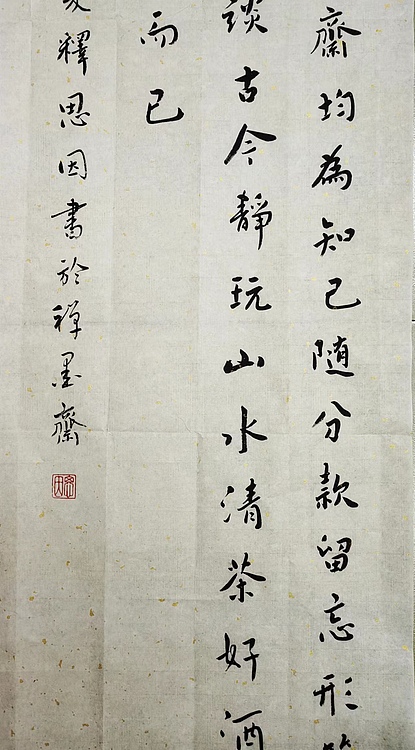 齋均為知己随分款留忘形
談古今靜玩山水清茶好酒
而已
釋思因書於禪墨齋